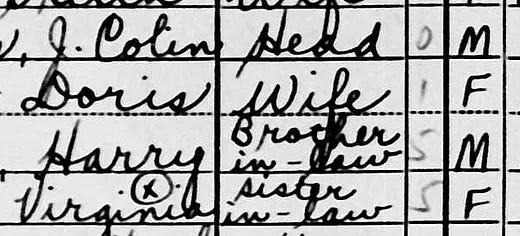 , J. Colin Head 0 M
Doris Wife 1 F
, Harry Brother in-law 5 M
Virginia ⓧ sister in-law 5 F